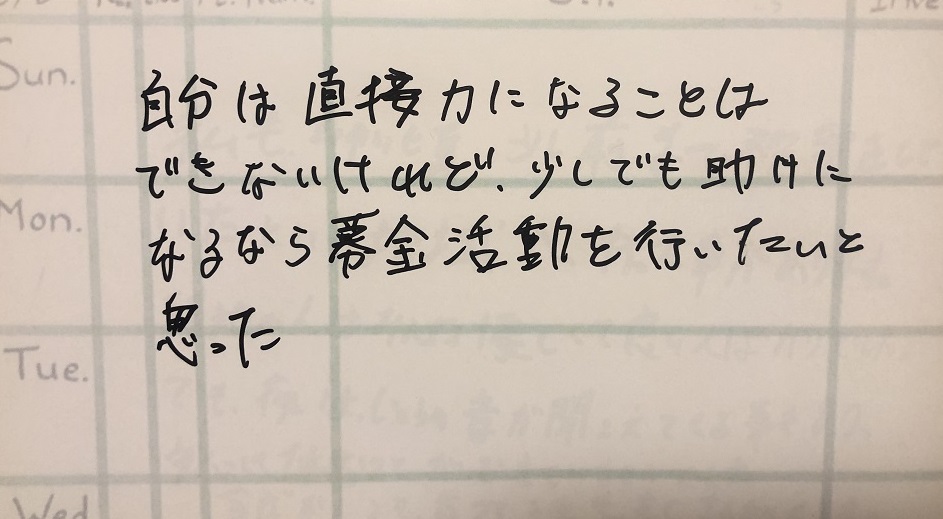 Sun.
自分は直接力になることは
できないけれど、少しでも助けに
Mon.
なるなら募金活動を行いたいと
思った
Tue.
Wed